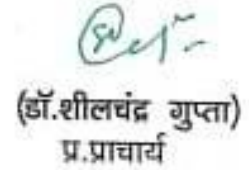 (डॉ.शीलचंद्र गुप्ता)
प्र.प्राचार्य